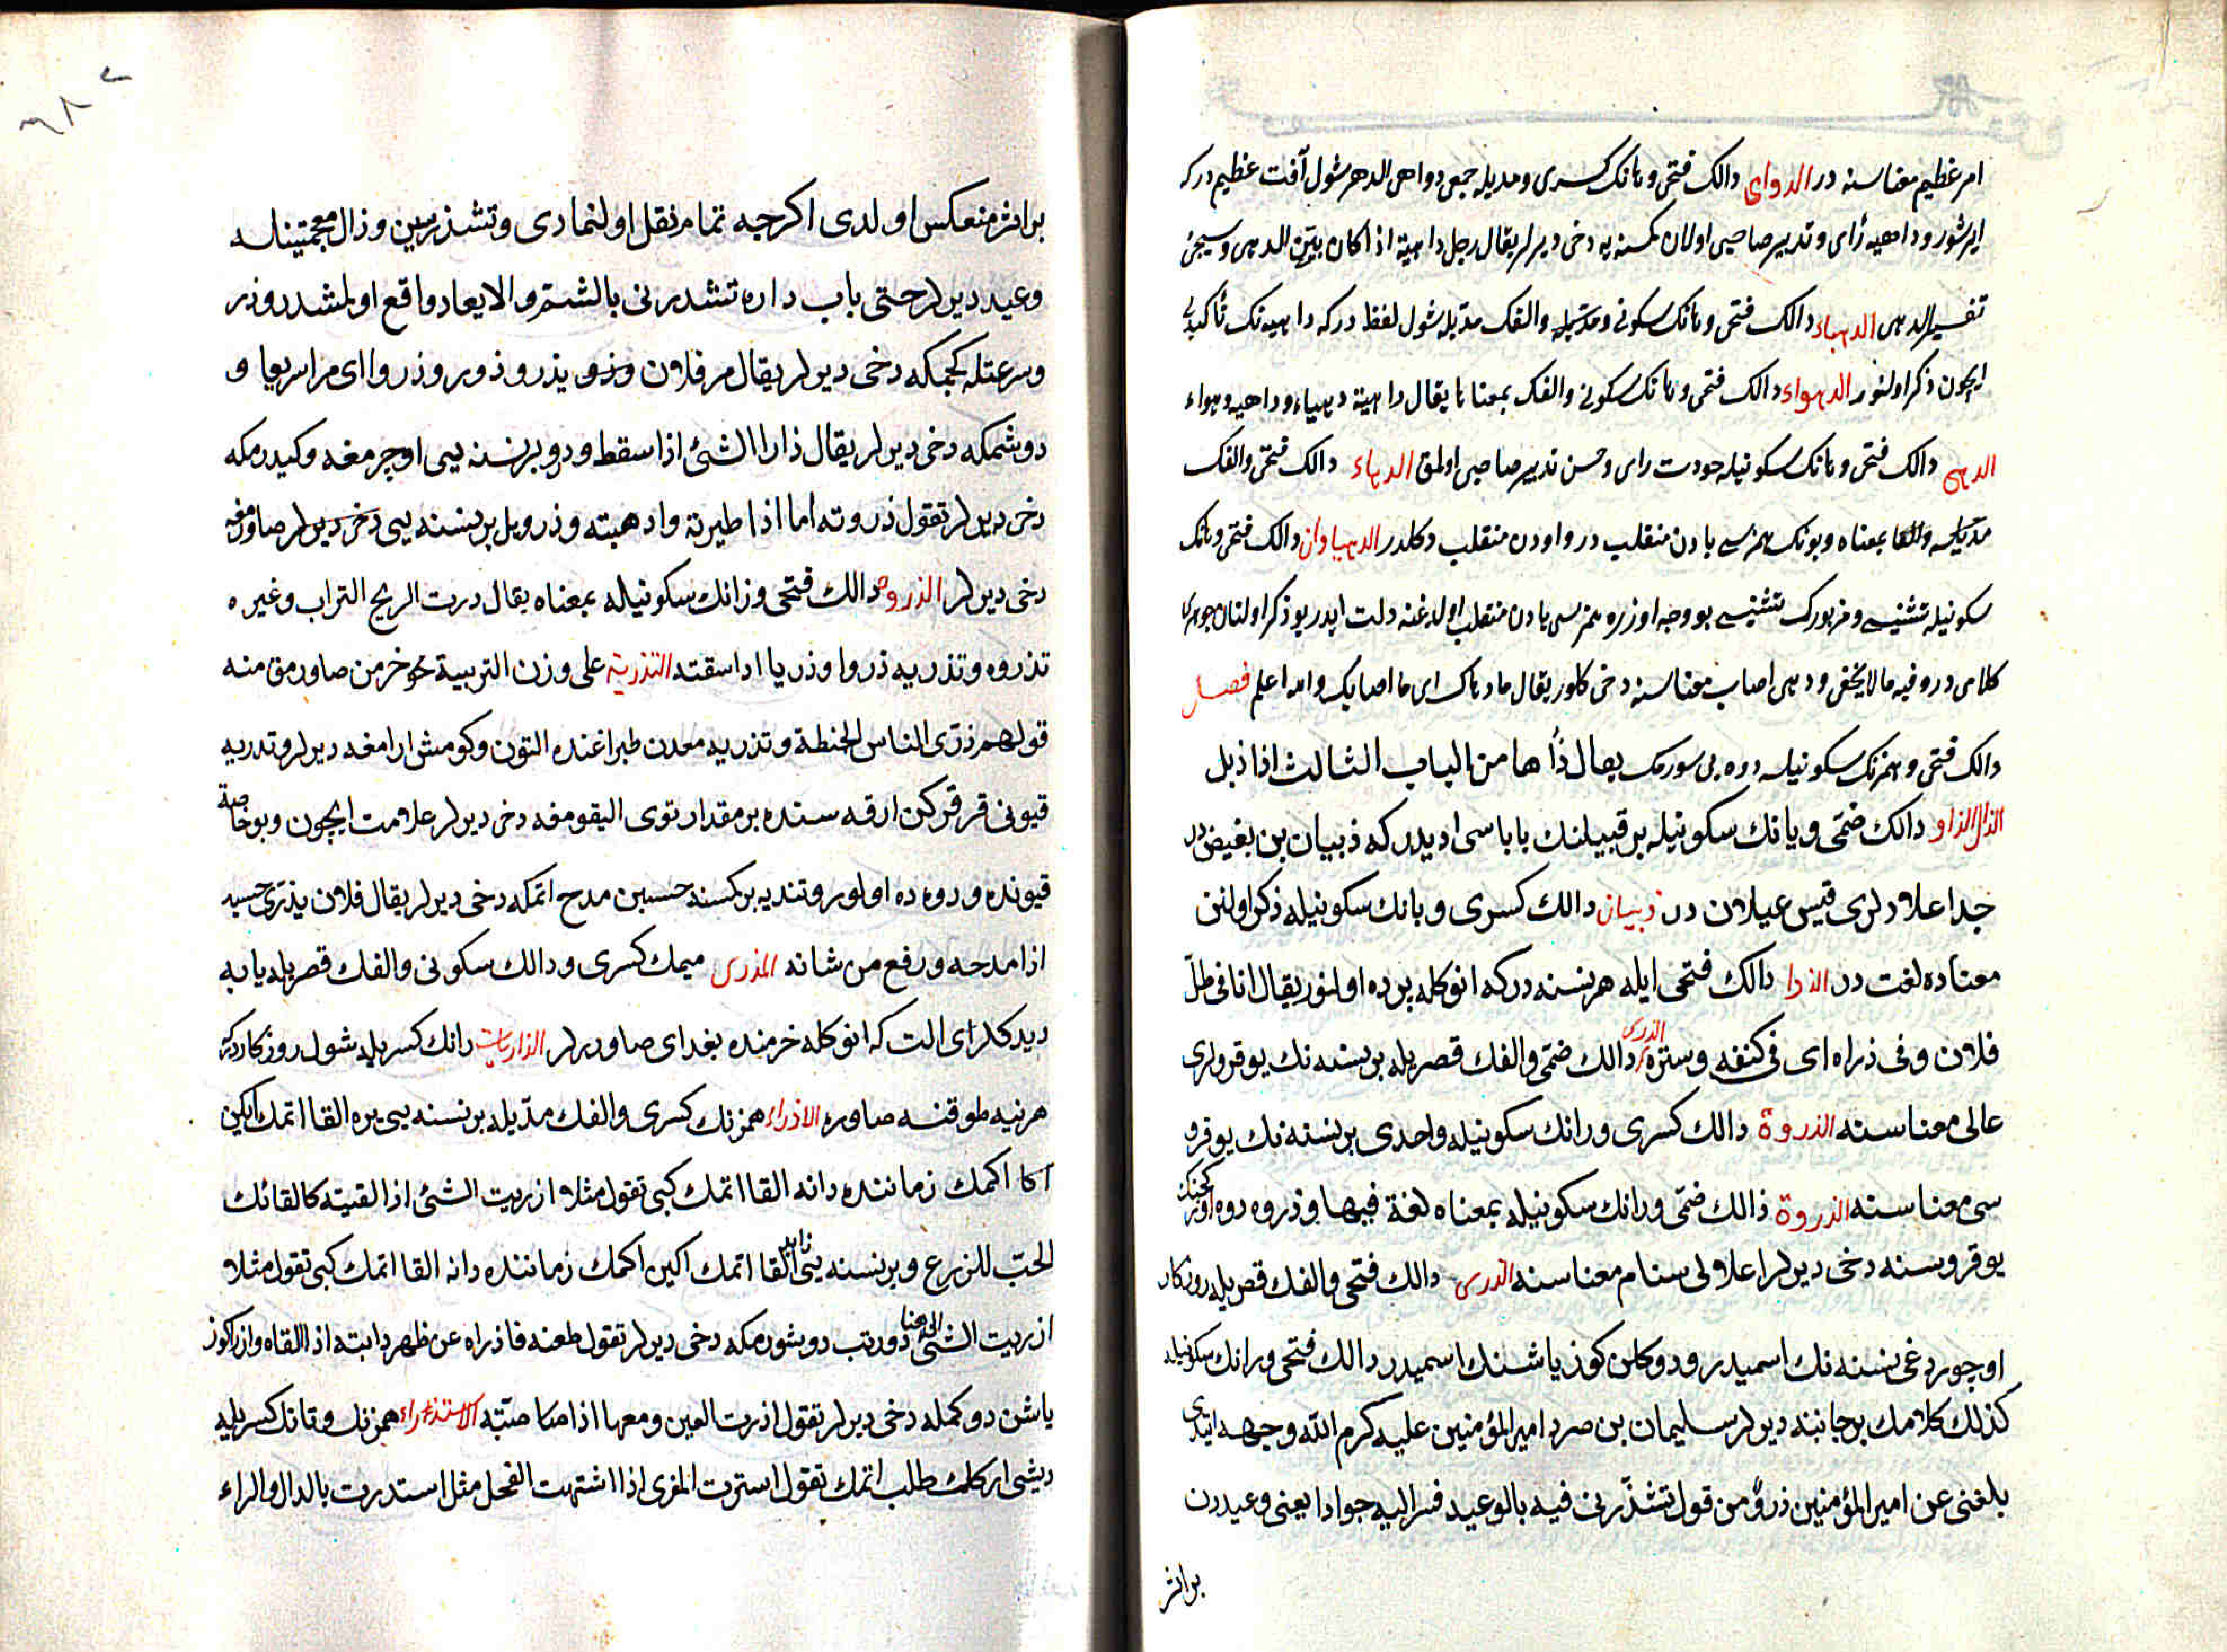 امر عظيم معناسنه در الدواهى دالك فتحى وهانك كسرى ومديله جمعى دواهى الدهر شول آفت عظيم در كه
ايرشور وداهيه رأى وتدبير صاحبى اولان كمسنه يه دخى ديرلر يقال رجل داهية اذا كان بيّن الدهى وسيجئ
تفسير الدهى الدهياء دالك فتحى وهانك سكونى ويائيله والفك مديله شول لفظ در كه داهيه نك تأكيدى
ايچون ذكر اولنور الدهواء دالك فتحى وهانك سكونى والفك بمعناها يقال داهية دهياء وداهيه دهواء
الدهى دالك فتحى وهانك سكونيله جودت راى وحسن تدبير صاحبى اولمق الدهاء دالك فتحى والفك
مديله والها بمعناه وبونك همزسى يادن منقلب در واودن منقلب دكلدر الدهياوان دالك فتحى وهانك
سكونيله تثنيسى ومزبورك تثنيسى بو وجه اوزره همزسى يادن منقلب اولدغنه دلت ايدر بو ذكر اولنان جوهرى
كلامى در وفيه ما لا يخفى ودهى اصاب معناسنه دخى كلور يقال ما دهاك اى ما اصابك والله اعلم فصل
دالك فتحى وهمزنك سكونيله دوه يى سورمك يقال ذأها من الباب الثالث اذا ذبل
الذال الذاو دالك ضمّى ويانك سكونيله بر قبيلنك باباسى اديدر كه ذبيان بن بغيض در
جد اعلالرى قيس عيلان در ذبيان دالك كسرى وبانك سكونيله ذكر اولنن
معناده لغت در الذرا دالك فتحى ايله هر نسنه در كه انوكله پرده اولنور يقال انا فى ظلّ
فلان وفى ذراه اى فى كنفه وستره الذرى دالك ضمّى والفك قصريله بر نسنه نك يوقرولرى
عالى معناسنه الذروة دالك كسرى ورانك سكونيله واحدى بر نسنه نك يوقرو
سى معناسنه الذروة ذالك ضمّى ورانك سكونيله بمعناه لغة فيها وذروه دوه اوركجنك
يوقروسنه دخى ديرلر اعلاى سنام معناسنه الذرى دالك فتحى والفك قصريله روزكار
اوجوردغى نسنه نك اسميدر ودوكلن كوز ياشنك اسميدر دالك فتحى ورانك سكونيله
كذلك كلامك بر جانبنه ديرلر سليمان بن صرد امير المؤمنين عليه كرم الله وجهه ايتدى
بلغنى عن امير المؤمنين ذروٌ من قول تشذّر نى فيه بالوعيد فسر اليه جوادا يعنى وعيددن
براثر
٦٨٢
براثر منعكس اولدى اكرچه تمام نقل اولنمادى وتشذر سين وذال معجمتينله
وعيد ديرلر حتى باب داره تشدرنى بالشتم والايعاد واقع اولمشدر وذر
وسرعتله كچمكه دخى ديرلر يقال مر فلان وذو يذرو ذور وذروا اى مر اسريعا و
دوشمكه دخى ديرلر يقال ذارا الشئ اذا سقط ودرو بر نسنه يى اوچرمغه وكيدرمكه
دخى ديرلر تقول ذروته اما اذا طيرته واذهبته وذرو يل بر نسنه يى دخى ديرلر صاورمغه
دخى ديرلر الذرو دالك فتحى وزانك سكونيله بمعناه يقال درت الريح التراب وغيره
تذروه وتذريه ذروا وذريا اذا سقته التذرية على وزن التربية خرمن صاورمق منه
قولهم ذرّى الناس الحنطة وتذريه معدن طپراغنده التون وكومش ارامغه ديرلر وتدريه
قيونى قرقركن ارقه سنده بر مقدار توى اليقومغه دخى ديرلر علامت ايچون وبو خاصة
قيونده ودوه ده اولور وتذريه بر كمسنه حسبن مدح اتمكه دخى ديرلر يقال فلان يذرّى حسبه
اذا مدحه ورفع من شانه المذرى ميمك كسرى ودالك سكونى والفك قصريله يابه
ديدكلراى الت كه انوكله خرمنده بغداى صاوررلر الذاريات رانك كسريله شول روزكاردر كه
هر نيه طوقنسه صاورر الاذراء همزنك كسرى والفك مدّيله بر نسنه يى يره القا اتمك اكين
اكا اكمك زماننده دانه القا اتمك كبى تقول مثلا اذريت الشئ اذا القيته كالقائك
الحبّ للزرع وبر نسنه يى القا اتمك اكين اكمك زماننده دانه القا اتمك كبى تقول مثلا
اذريت الشئ دورتب دوشورمكه دخى ديرلر تقول طعنه فاذراه عن ظهر دابته اذا القاه واذرا كوز
ياشن دوكمكه دخى ديرلر تقول اذرت العين دمعها اذا صبّته الاستذراء همزنك وتانك كسريله
ديشى اركك طلب اتمك تقول استذرت المعزى اذا اشتهت الفحل مثل استدرت بالدال والراء